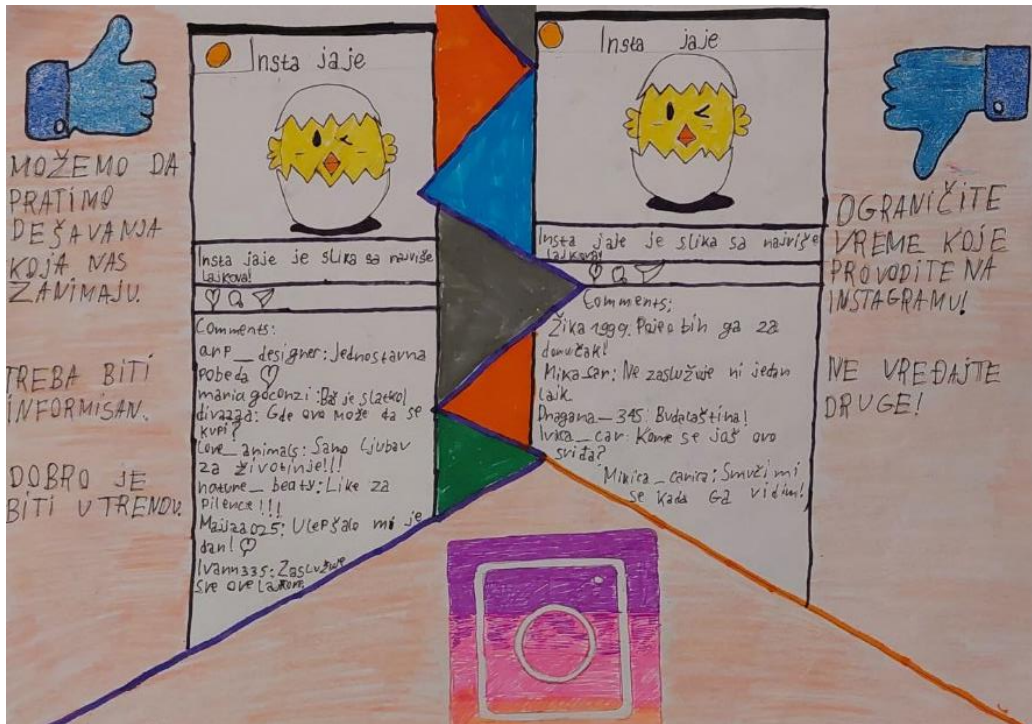 MOŽEMO DA
PRATIMO
DEŠAVANJA
KOJA NAS
ZANIMAJU.
TREBA BITI
INFORMISAN.
DOBRO JE
BITI U TRENDU.
Insta jaje
Insta jaje je slika sa najviše
lajkova!
Comments:
anp__designer: Jednostavna
pobeda
mania goconzi: Baš je slatko!
divazad: Gde ovo može da se
kupi?
Love_animals: Samo ljubav
za životinje!!!
nature_beaty: Like za
pilence!!!
Majaa025: Ulepšalo mi je
dan!
Ivann335: Zaslužuje
sve ove lajkove
Insta jaje
Insta jaje je slika sa najviše
lajkova!
Comments:
Žika 1999: Pojeo bih ga za
doručak!
Mika_car: Ne zaslužuje ni jedan
lajk
Dragana_345: Budalaština!
Ivica_car: Kome se još ovo
sviđa?
Mikica_canica: Smuči mi
se kada ga vidim!
OGRANIČITE
VREME KOJE
PROVODITE NA
INSTAGRAMU!
NE VREĐAJTE
DRUGE!